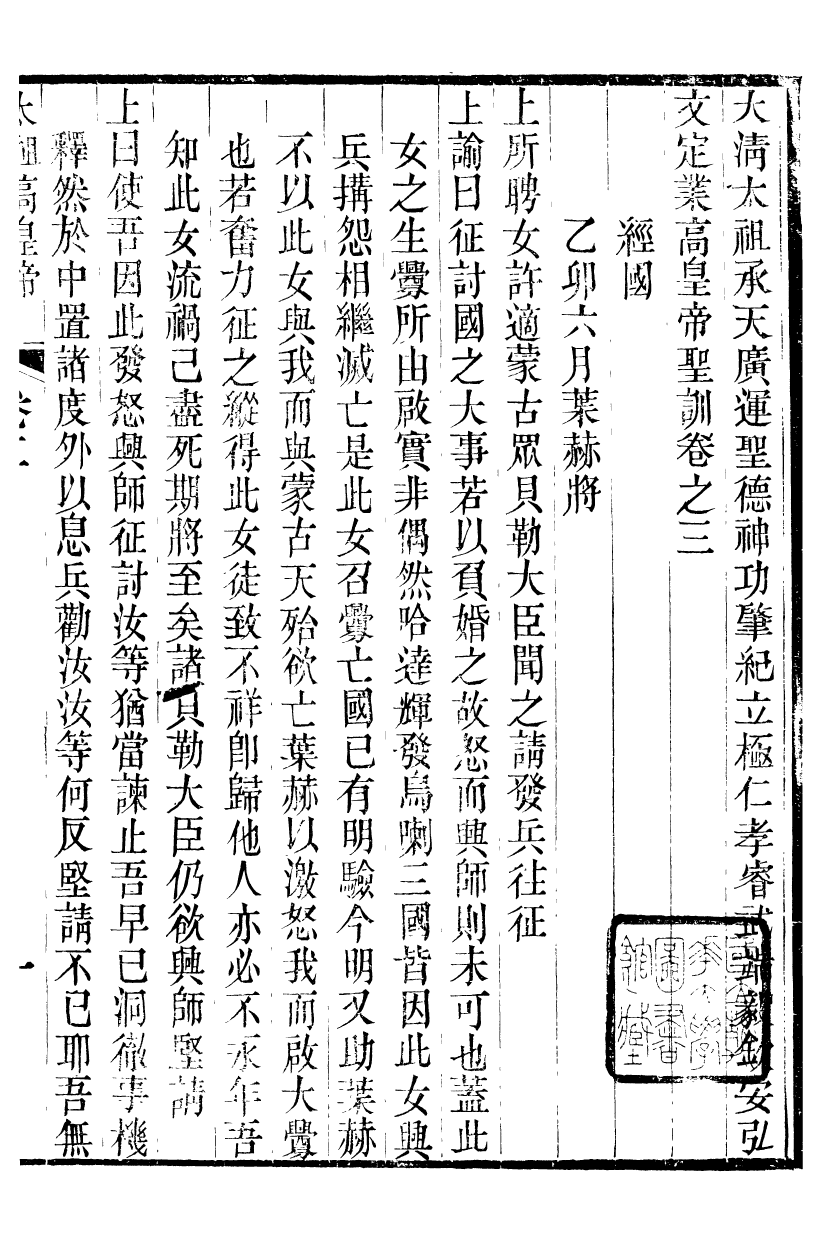 大淸太祖承天廣運聖德神功肇紀立極仁孝睿武端毅欽安弘
文定業高皇帝聖訓卷之三
經國
乙卯六月葉赫將
上所聘女許適蒙古眾貝勒大臣聞之請發兵往征
上諭曰征討國之大事若以負婚之故怒而興師則未可也蓋此
女之生釁所由啟實非偶然哈達輝發烏喇三國皆因此女興
兵搆怨相繼滅亡是此女召釁亡國已有明驗今明又助葉赫
不以此女與我而與蒙古天殆欲亡葉赫以激怒我而啟大釁
也若奮力征之縱得此女徒致不祥卽歸他人亦必不永年吾
知此女流禍已盡死期將至矣諸貝勒大臣仍欲興師堅請
上曰使吾因此發怒興師征討汝等猶當諫止吾早已洞徹事機
釋然於中置諸度外以息兵勸汝汝等何反堅請不已耶吾無
太祖高皇帝 卷三 一